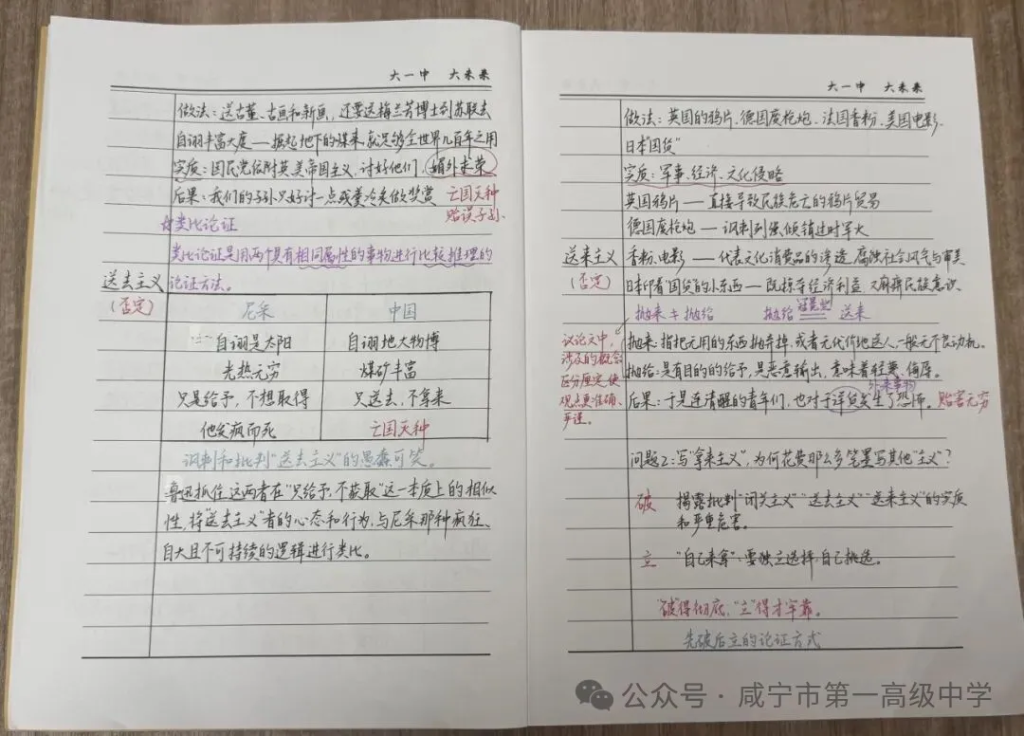 大一中 大未来
做法：送古董、古画和新画，还要送梅兰芳博士到苏联去
自诩丰富大度——掘起地下的煤来就足够全世界几百年之用
实质：国民党依附英美帝国主义，讨好他们，媚外求荣
后果：我们的子孙只好讨一点残羹冷炙做奖赏
亡国灭种
贻误子孙
☆类比论证
类比论证是用两个具有相同属性的事物进行比较推理的
论证方法。
送去主义
（否定）
尼采 中国
自诩是太阳 自诩地大物博
光热无穷 煤矿丰富
只是给予，不想取得 只送去，不拿来
他发疯而死 亡国灭种
讽刺和批判“送去主义”的愚蠢可笑。
鲁迅抓住这两者在“只给予，不获取”这一本质上的相似
性，将“送去主义”者的心态和行为，与尼采那种疯狂、
自大且不可持续的逻辑进行类比。
大一中 大未来
做法：英国的鸦片、德国废枪炮、法国香粉、美国电影、
日本“国货”
实质：军事、经济、文化侵略
英国鸦片——直接导致民族危亡的鸦片贸易
德国废枪炮——讽刺列强倾销过时军火
送来主义
（否定）
香粉、电影——代表文化消费品的渗透，腐蚀社会风气与审美
日本印着“国货”的小东西——既掠夺经济利益，又麻痹民族意识。
抛来≠抛给 抛给 送来
议论文中，
涉及的概念
区分厘定，使
观点更准确、
严谨。
抛来：指把无用的东西抛弃掉，或者无代价地送人，一般无不良动机。
抛给：是有目的的给予，是恶意输出，意味着轻蔑、侮辱。
外来事物
后果：于是连清醒的青年们，也对于洋货发生了恐怖。 贻害无穷
问题2：写“拿来主义”，为何花费那么多笔墨写其他“主义”？
破 揭露批判“闭关主义”“送去主义”“送来主义”的实质
和严重危害。
立 “自己来拿”，要独立选择，自己挑选。
“破”得彻底，“立”得才牢靠。
先破后立的论证方式
公众号·咸宁市第一高级中学